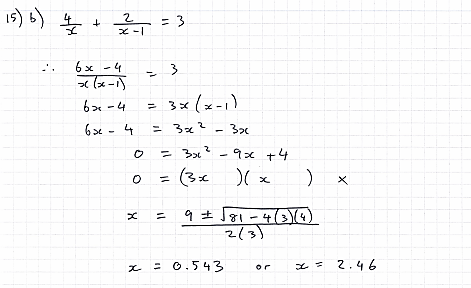 15) b) 4/x + 2/(x-1) = 3
∴ (6x - 4)/(x(x-1)) = 3
6x - 4 = 3x(x-1)
6x - 4 = 3x² - 3x
0 = 3x² - 9x + 4
0 = (3x )(x ) ×
x = (9 ± √(81 - 4(3)(4)))/(2(3))
x = 0.543 or x = 2.46